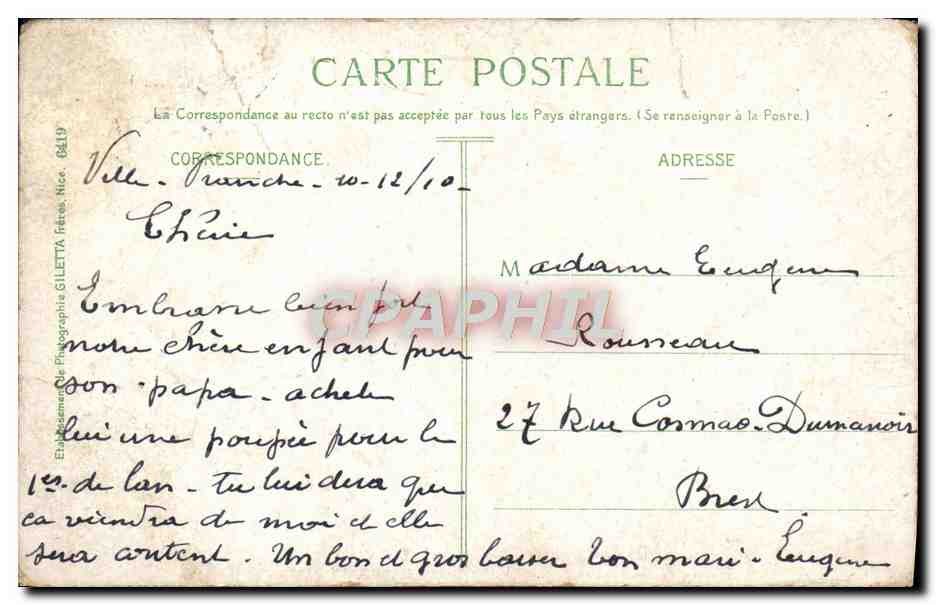 CARTE POSTALE
La Correspondance au recto n'est pas acceptée par tous les Pays étrangers. (Se renseigner à la Poste.)
CORRESPONDANCE.
Ville-Franche - 10-12/10-
Chérie
Embrasse bien fort
notre chère enfant pour
son papa - achete
lui une poupée pour le
1er de lan - tu lui dira que
ca viendra de moi et elle
sera content. Un bon et gros baiser ton mari - Eugene
ADRESSE
Madame Eugene
Rousseau
27 Rue Cosmao-Dumanoir
Brest
Etablissement de Photographie GILETTA frères, Nice. 6419
CPAPHIL